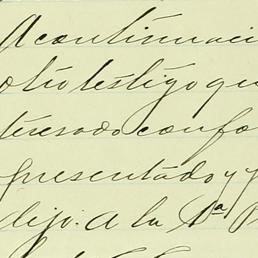 A continuaci
otro testigo qu
teresado confo
presentado y p
dijo: A la 1ª P